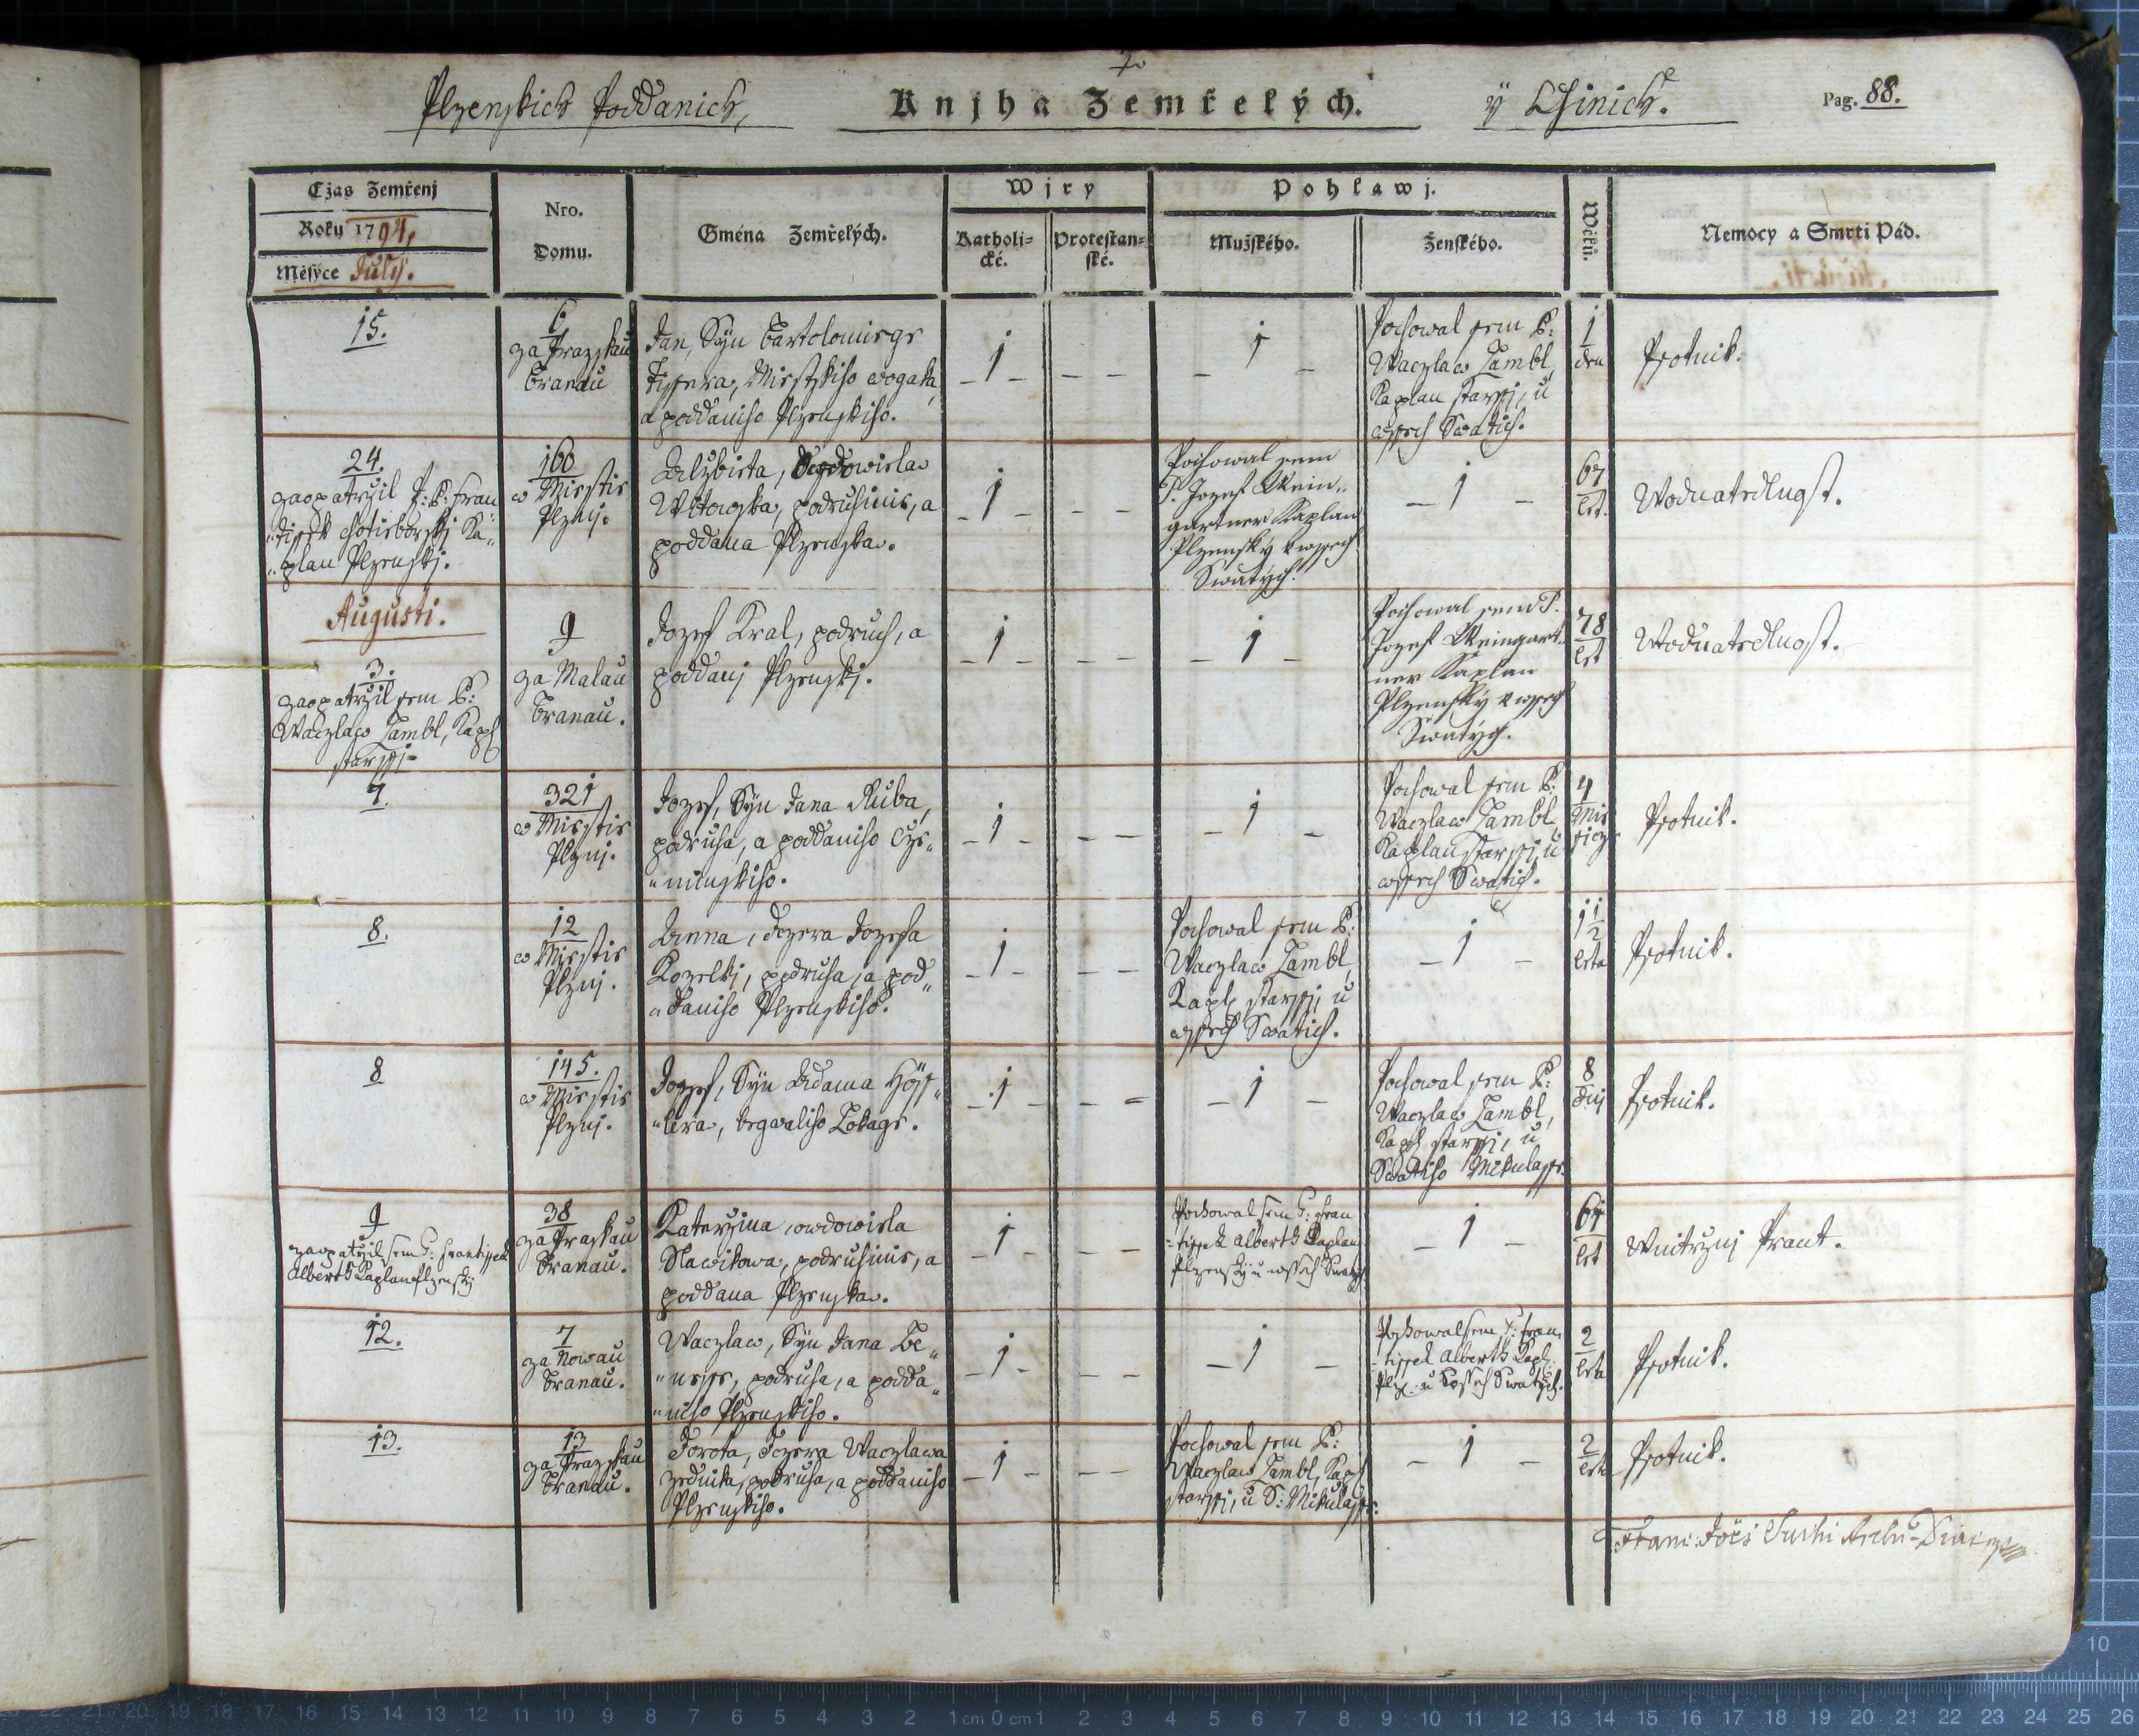 Plzenskich Poddanich,
Knjha Zemřelých.
ÿ Čžinich.
Pag. 88.
Cžas Zemřenj
Roku 1794.
Měsýce July.
Nro. Domu.
Gména Zemřelých.
Wjry
Katholi=
cké.
Protestan=
ské.
Pohlawj.
Mužského.
Ženského.
Wěků.
Nemocy a Smrti Pád.
15.
6
za Prazskau
Branau
Jan, Syn Bartolomiege
Fissera, Miestskiho wogaka,
a poddaniho Plzenskiho.
1
1
Pochowal sem P:
Waczlaw Lambl,
Kaplan starssj, u
wssech Swatich.
1
den
Psotnik.
24.
zaopatrzil P: P: Fran
"tissek Chotieborskj Ka"
"plan Plzenskj.
160
w Miestie
Plznj.
Alzbieta, Owdowiela
podruhinie, a
poddana Plzenska.
1
Pochowal sem
P. Jozef Wein"
gartner Kaplan
Plzenský u wssech
Swatých.
1
67
let.
Wodnatedlnost.
Augusti.
3.
zaopatrzil sem P:
Waczlaw Lambl, Kapl
starssj
9
za Malau
Branau.
Jozef Kral, podruh, a
poddanj Plzenskj.
1
1
Pochowal sem P.
Jozef Weingart"
ner Kaplan
Plzenský u wssech
Swatých.
78
let
Wodnatedlnost.
7.
321
w Miestie
Plznj.
Jozef, Syn Jana Kuba,
podruha, a poddaniho Cžer"
"ninskiho.
1
1
Pochowal sem P:
Waczlaw Lambl
Kaplan starssj, u
wssech Swatich.
4
Mie
sicz
Psotnik.
8.
12
w Miestie
Plznj.
Anna, Dczera Jozefa
Kozelkj, podruha, a pod"
"daniho Plzenskiho.
1
Pochowal sem P:
Waczlaw Lambl,
Kapl: starssj, u
wssech Swatich.
1
1 1/2
leta
Psotnik.
8
145.
w Miestie
Plznj.
Jozef, Syn Adama Höss"
"lera, begwaliho Lokage.
1
1
Pochowal sem P:
Waczlaw Lambl,
Kapl starssj, u
Swatiho Mikulasse.
8
dnj
Psotnik.
9
zaopatrzil sem P: Frantissek
Alberth Kaplan Plzensky
38
za Praskau
Branau.
Katerzina, owdowiela
Slawikowa, podruhinie, a
poddana Plzenska.
1
Pochowal sem P: Fran
=tissek Alberth Kaplan
Plzenský u wssech Swatych.
1
64
let
Wnitrznj Prant.
12.
7
za Nowau
Branau.
Waczlaw, Syn Jana Be"
"nesse, podruha, a podda"
"niho Plzenskiho.
1
1
Pochowal sem P: Fran
=tissek Alberth Kapl:
Plz: u wssech Swatych.
2
leta
Psotnik.
13.
13
za Prazskau
Branau.
Dorota, Dczera Waczlawa
Zednika, podruha, a poddaniho
Plzenskiho.
1
Pochowal sem P:
Waczlaw Lambl, Kapl
starssj, u S: Mikulasse.
1
2
leta
Psotnik.